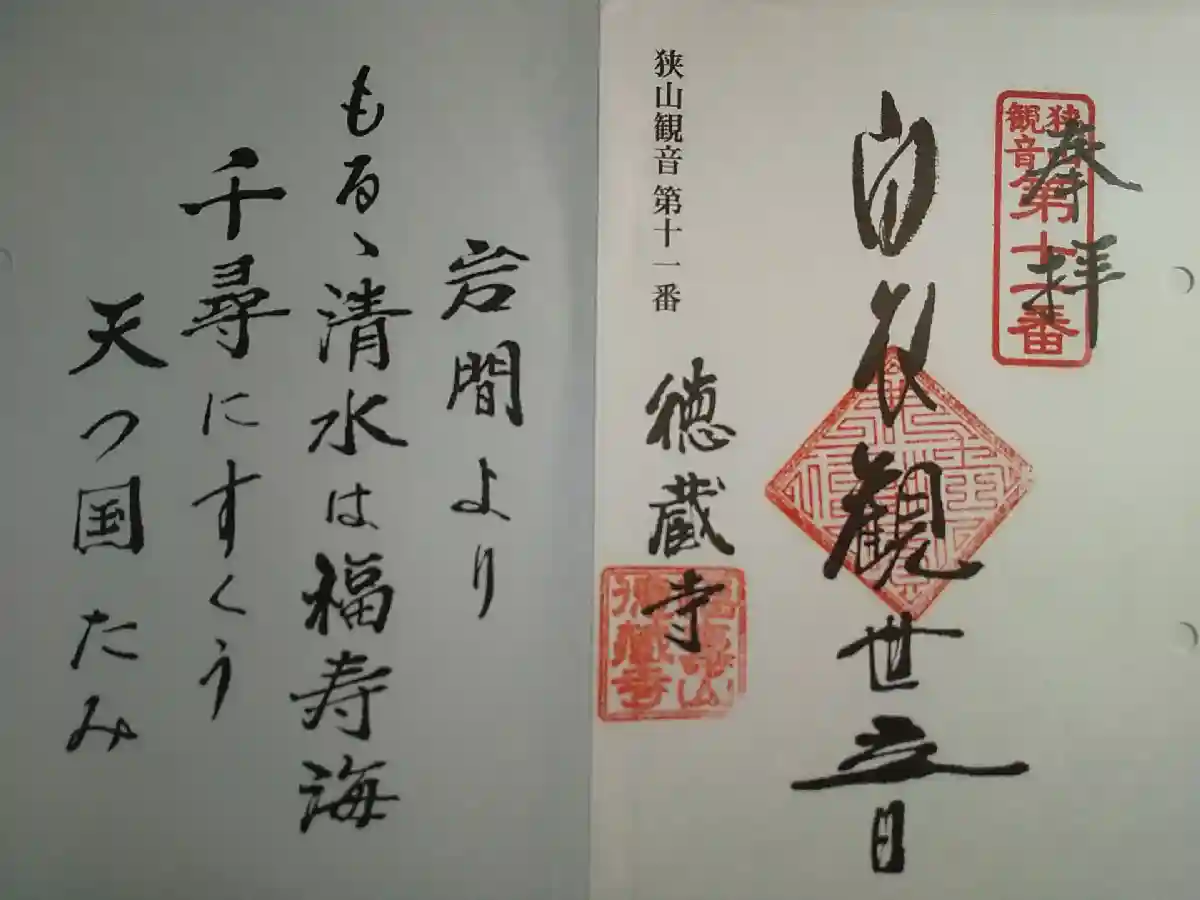 奉拝
狭山
観音
第十一番
白衣観世音
狭山観音 第十一番 徳蔵寺
岩間より
もるゝ清水は福寿海
千尋にすくう
天つ国たみ